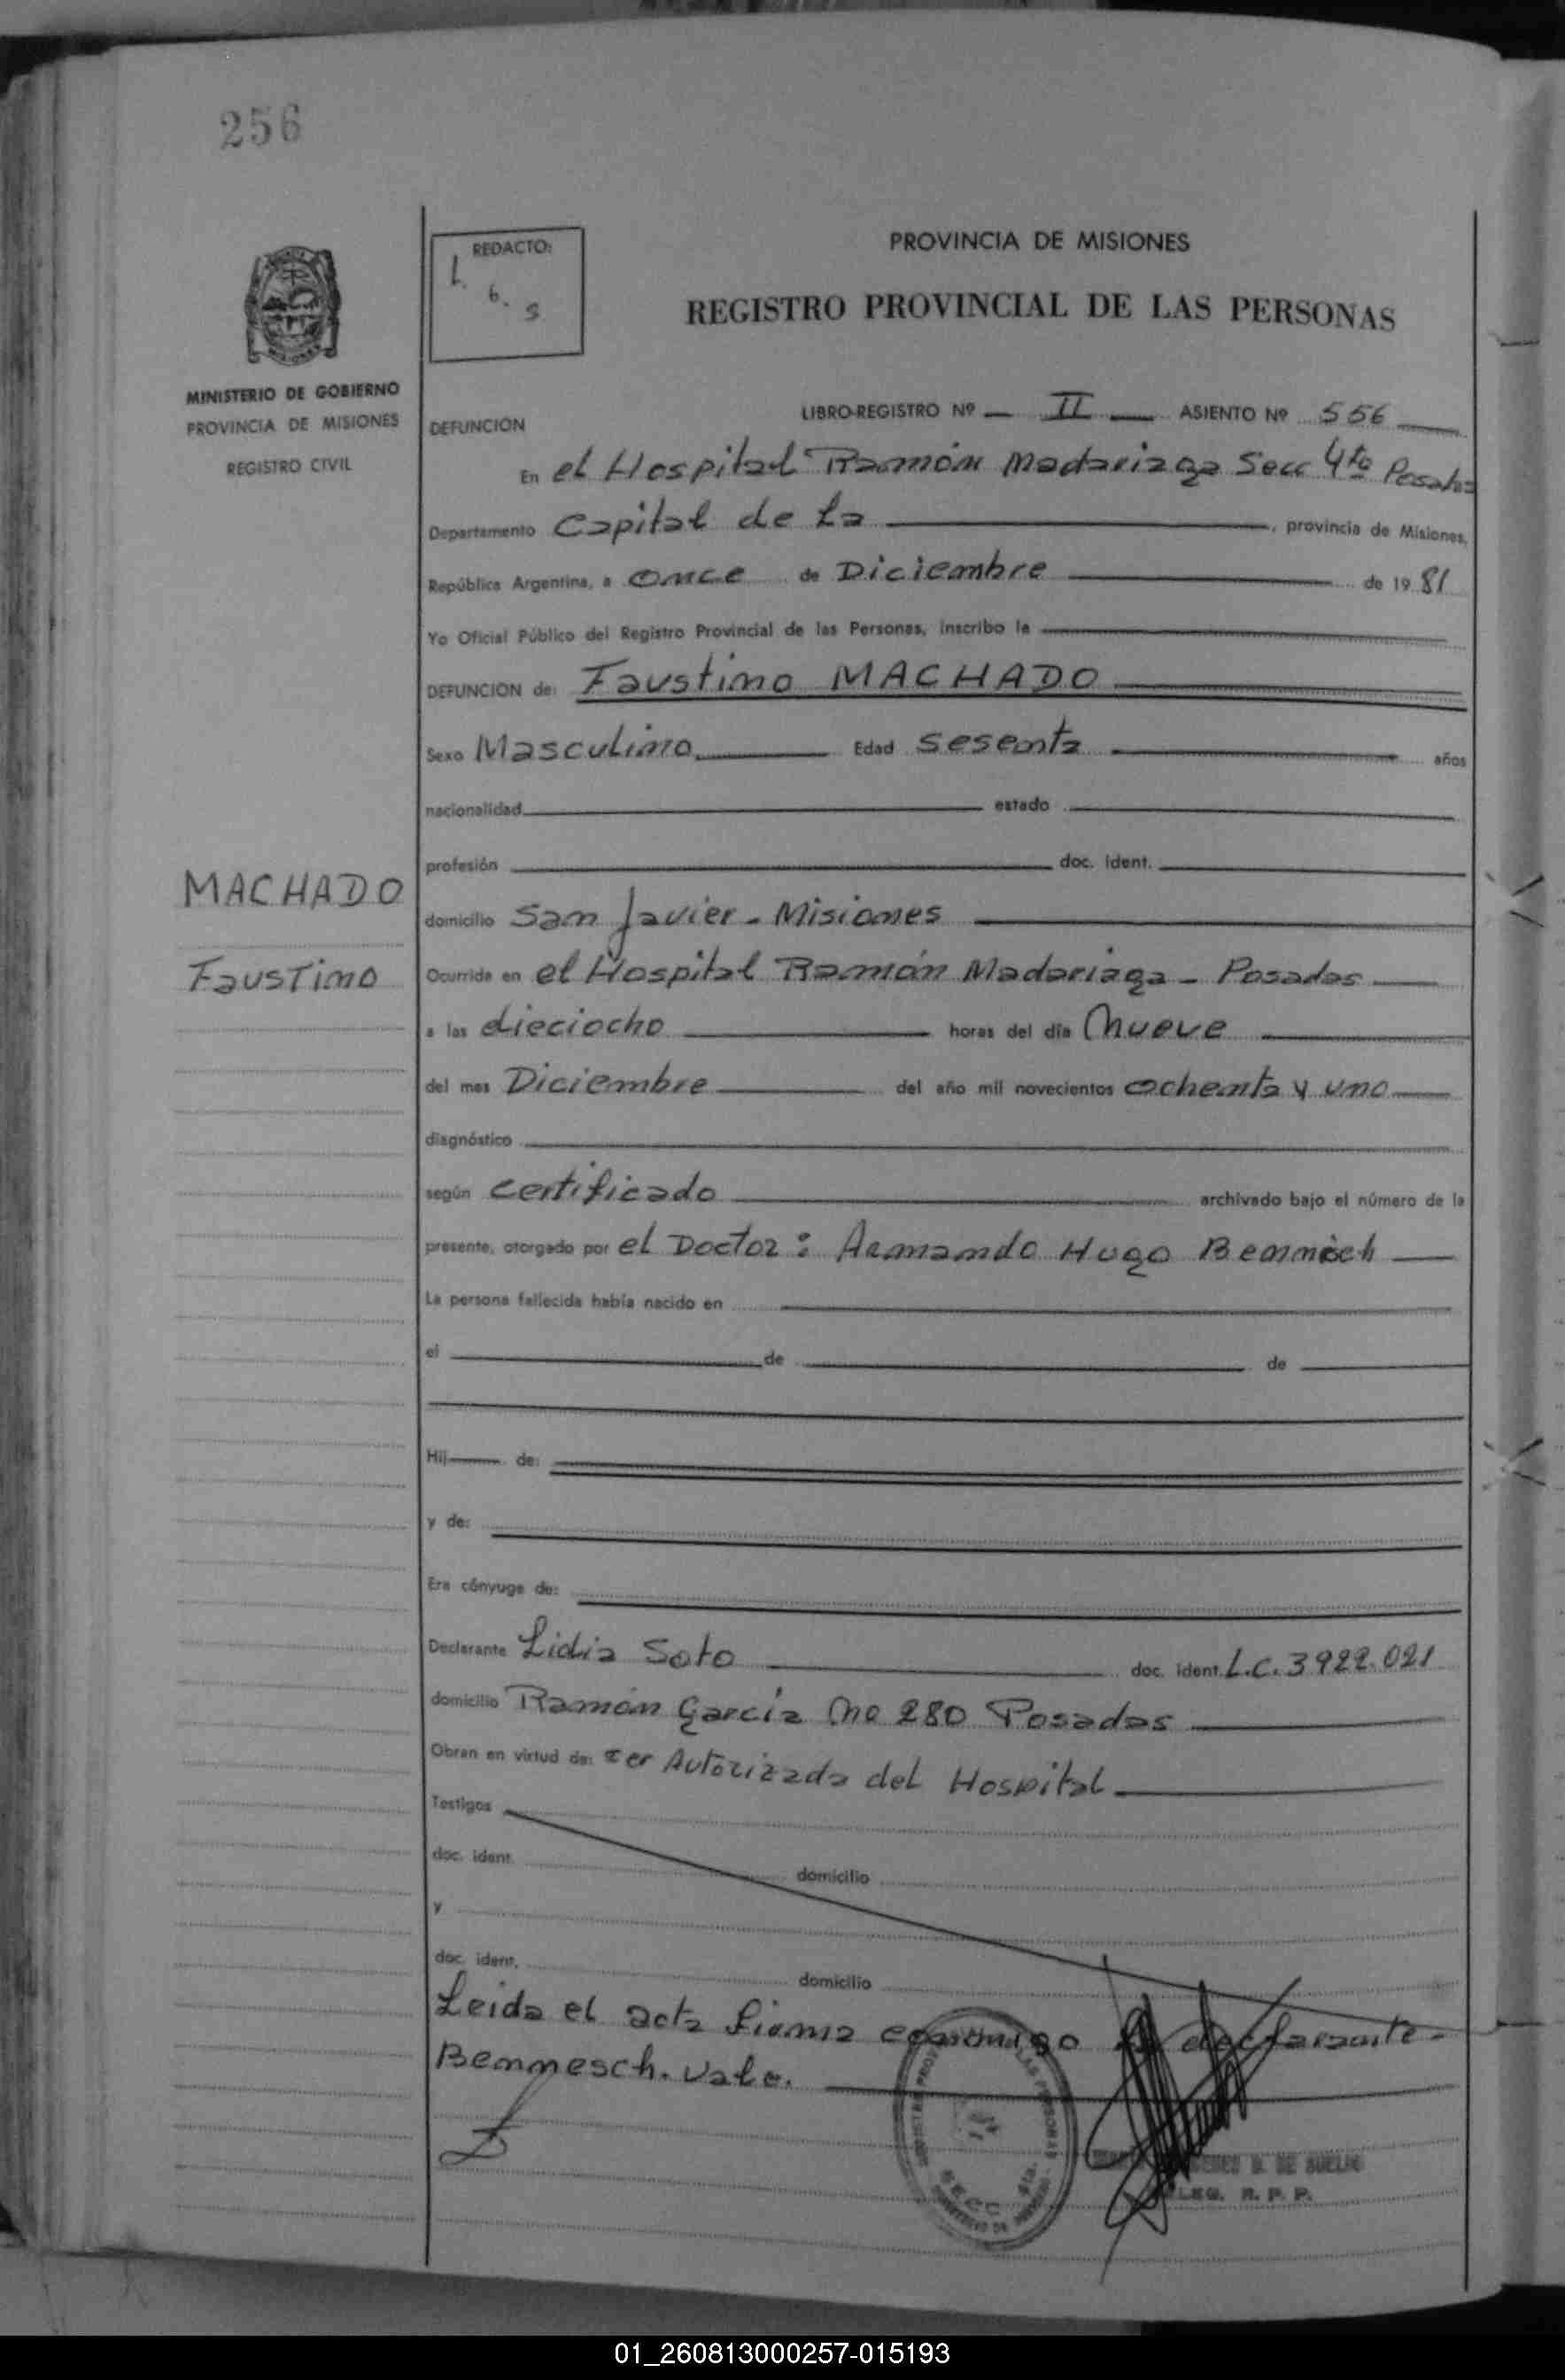 256
REDACTO:
L. 6. S
MINISTERIO DE GOBIERNO
PROVINCIA DE MISIONES
REGISTRO CIVIL
PROVINCIA DE MISIONES
REGISTRO PROVINCIAL DE LAS PERSONAS
DEFUNCION LIBRO-REGISTRO Nº II ASIENTO Nº 556
En el Hospital Ramón Madariaga Secc 4ta Posadas
Departamento Capital de La , provincia de Misiones,
República Argentina, a once de Diciembre de 1981
Yo Oficial Público del Registro Provincial de las Personas, inscribo la
DEFUNCION de: Faustino MACHADO
Sexo Masculino Edad sesenta años
nacionalidad estado
profesión doc. ident.
MACHADO
Faustino
domicilio San Javier - Misiones
Ocurrida en el Hospital Ramón Madariaga - Posadas
a las dieciocho horas del día Nueve
del mes Diciembre del año mil novecientos ochenta y uno
diagnóstico
según certificado archivado bajo el número de la
presente, otorgado por el Doctor: Armando Hugo Bennisch
La persona fallecida había nacido en
el de de
Hij de:
y de:
Era cónyuge de:
Declarante Lidia Soto doc. ident. L.C. 3922.021
domicilio Ramón García no 280 Posadas
Obran en virtud de: ser Autorizada del Hospital
Testigos
doc. ident. domicilio
y
doc. ident. domicilio
Leida el acta firma conmigo declarante -
Bennesch. Vale.
SECC 4ta.
LEG. R. P. P.
01_260813000257-015193